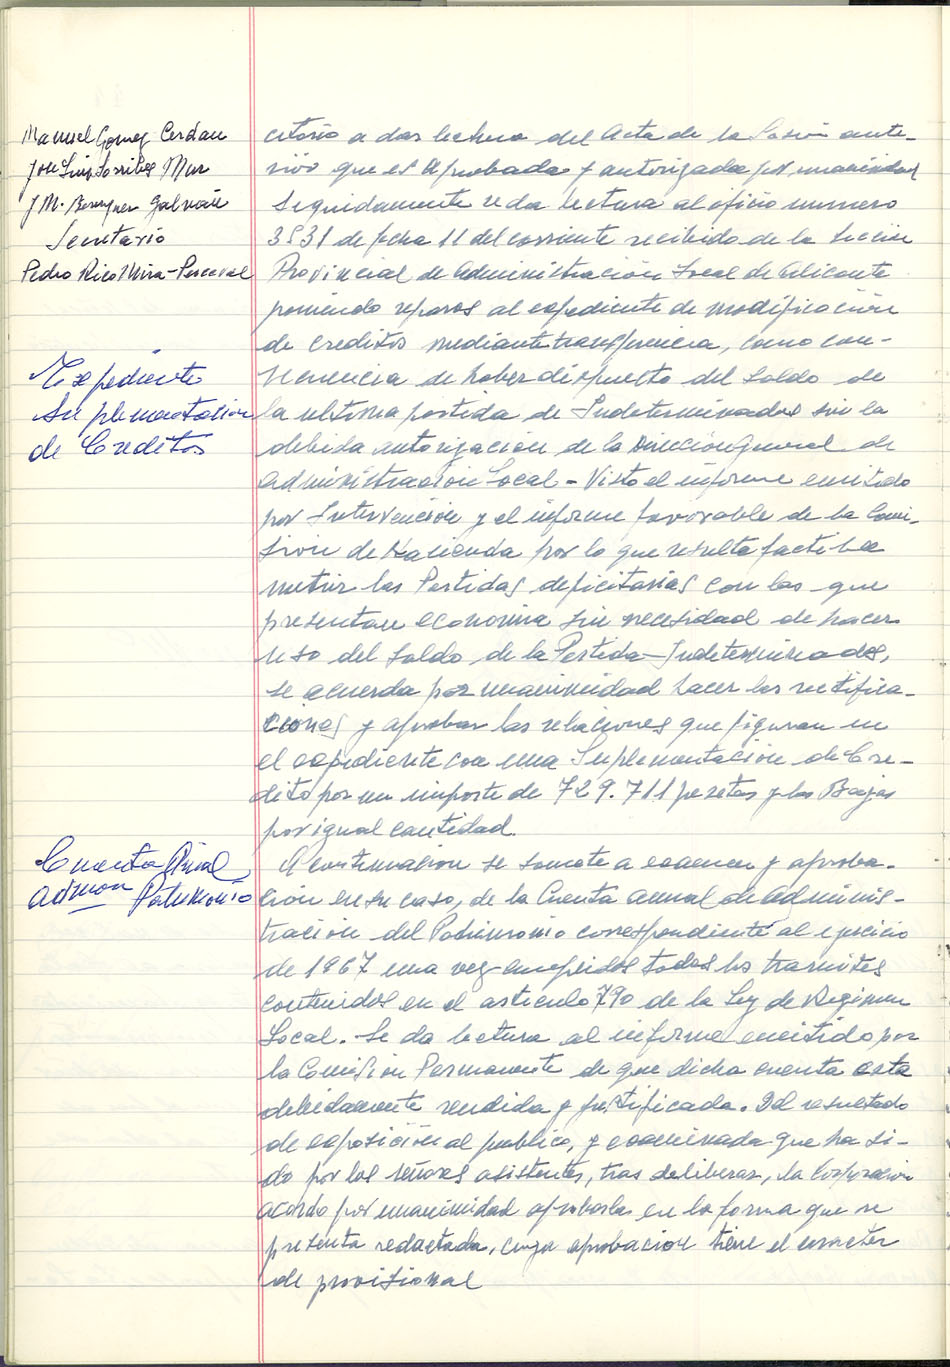 Manuel Gomez Cerdan
Jose Luis Sorribes Mur
J M. Berenguer Galvañ
Secretario
Pedro Rico Mira-Perceval
Expediente
Suplementacion
de Creditos
Cuenta Anual
Admon Patrimonio
cretario a dar lectura del Acta de la Sesión ante-
rior que es aprobada y autorizada por unanimidad
Seguidamente se da lectura al oficio numero
3531 de fecha 11 del corriente recibido de la Sección
Provincial de Administración Local de Alicante
poniendo reparos al expediente de modificación
de creditos mediante transferencia, como con-
secuencia de haber dispuesto del Saldo de
la ultima partida de Indeterminados sin la
debida autorizacion de la Dirección General de
Administracion Local - Visto el informe emitido
por Intervención y el informe favorable de la Comi-
sión de Hacienda por lo que resulta factible
nutrir las Partidas deficitarias con las que
presentan economia sin necesidad de hacer
uso del Saldo de la Partida Indeterminados,
se acuerda por unanimidad hacer las rectifica-
ciones y aprobar las relaciones que figuran en
el expediente con una Suplementación de Cre-
dito por un importe de 729.711 pesetas y las Bajas
por igual cantidad.
A continuacion se somete a examen y aproba-
ción en su caso, de la Cuenta anual de Adminis-
tración del Patrimonio correspondiente al ejercicio
de 1967 una vez cumplidos todos los tramites
contenidos en el articulo 790 de la Ley de Regimen
Local. Se da lectura al informe emitido por
la Comisión Permanente de que dicha cuenta esta
debidamente rendida y justificada. Del resultado
de exposición al publico, y examinada que ha si-
do por los señores asistentes, tras deliberar, la Corporacion
acordo por unanimidad aprobarla en la forma que se
presenta redactada, cuya aprobacion tiene el caracter
de provisional